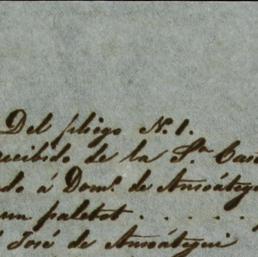 Del pliego N. 1.
recibido de la S.ra
á Dom.º de Ansoátegui
un paletot . . . . .
José de Ansoátegui